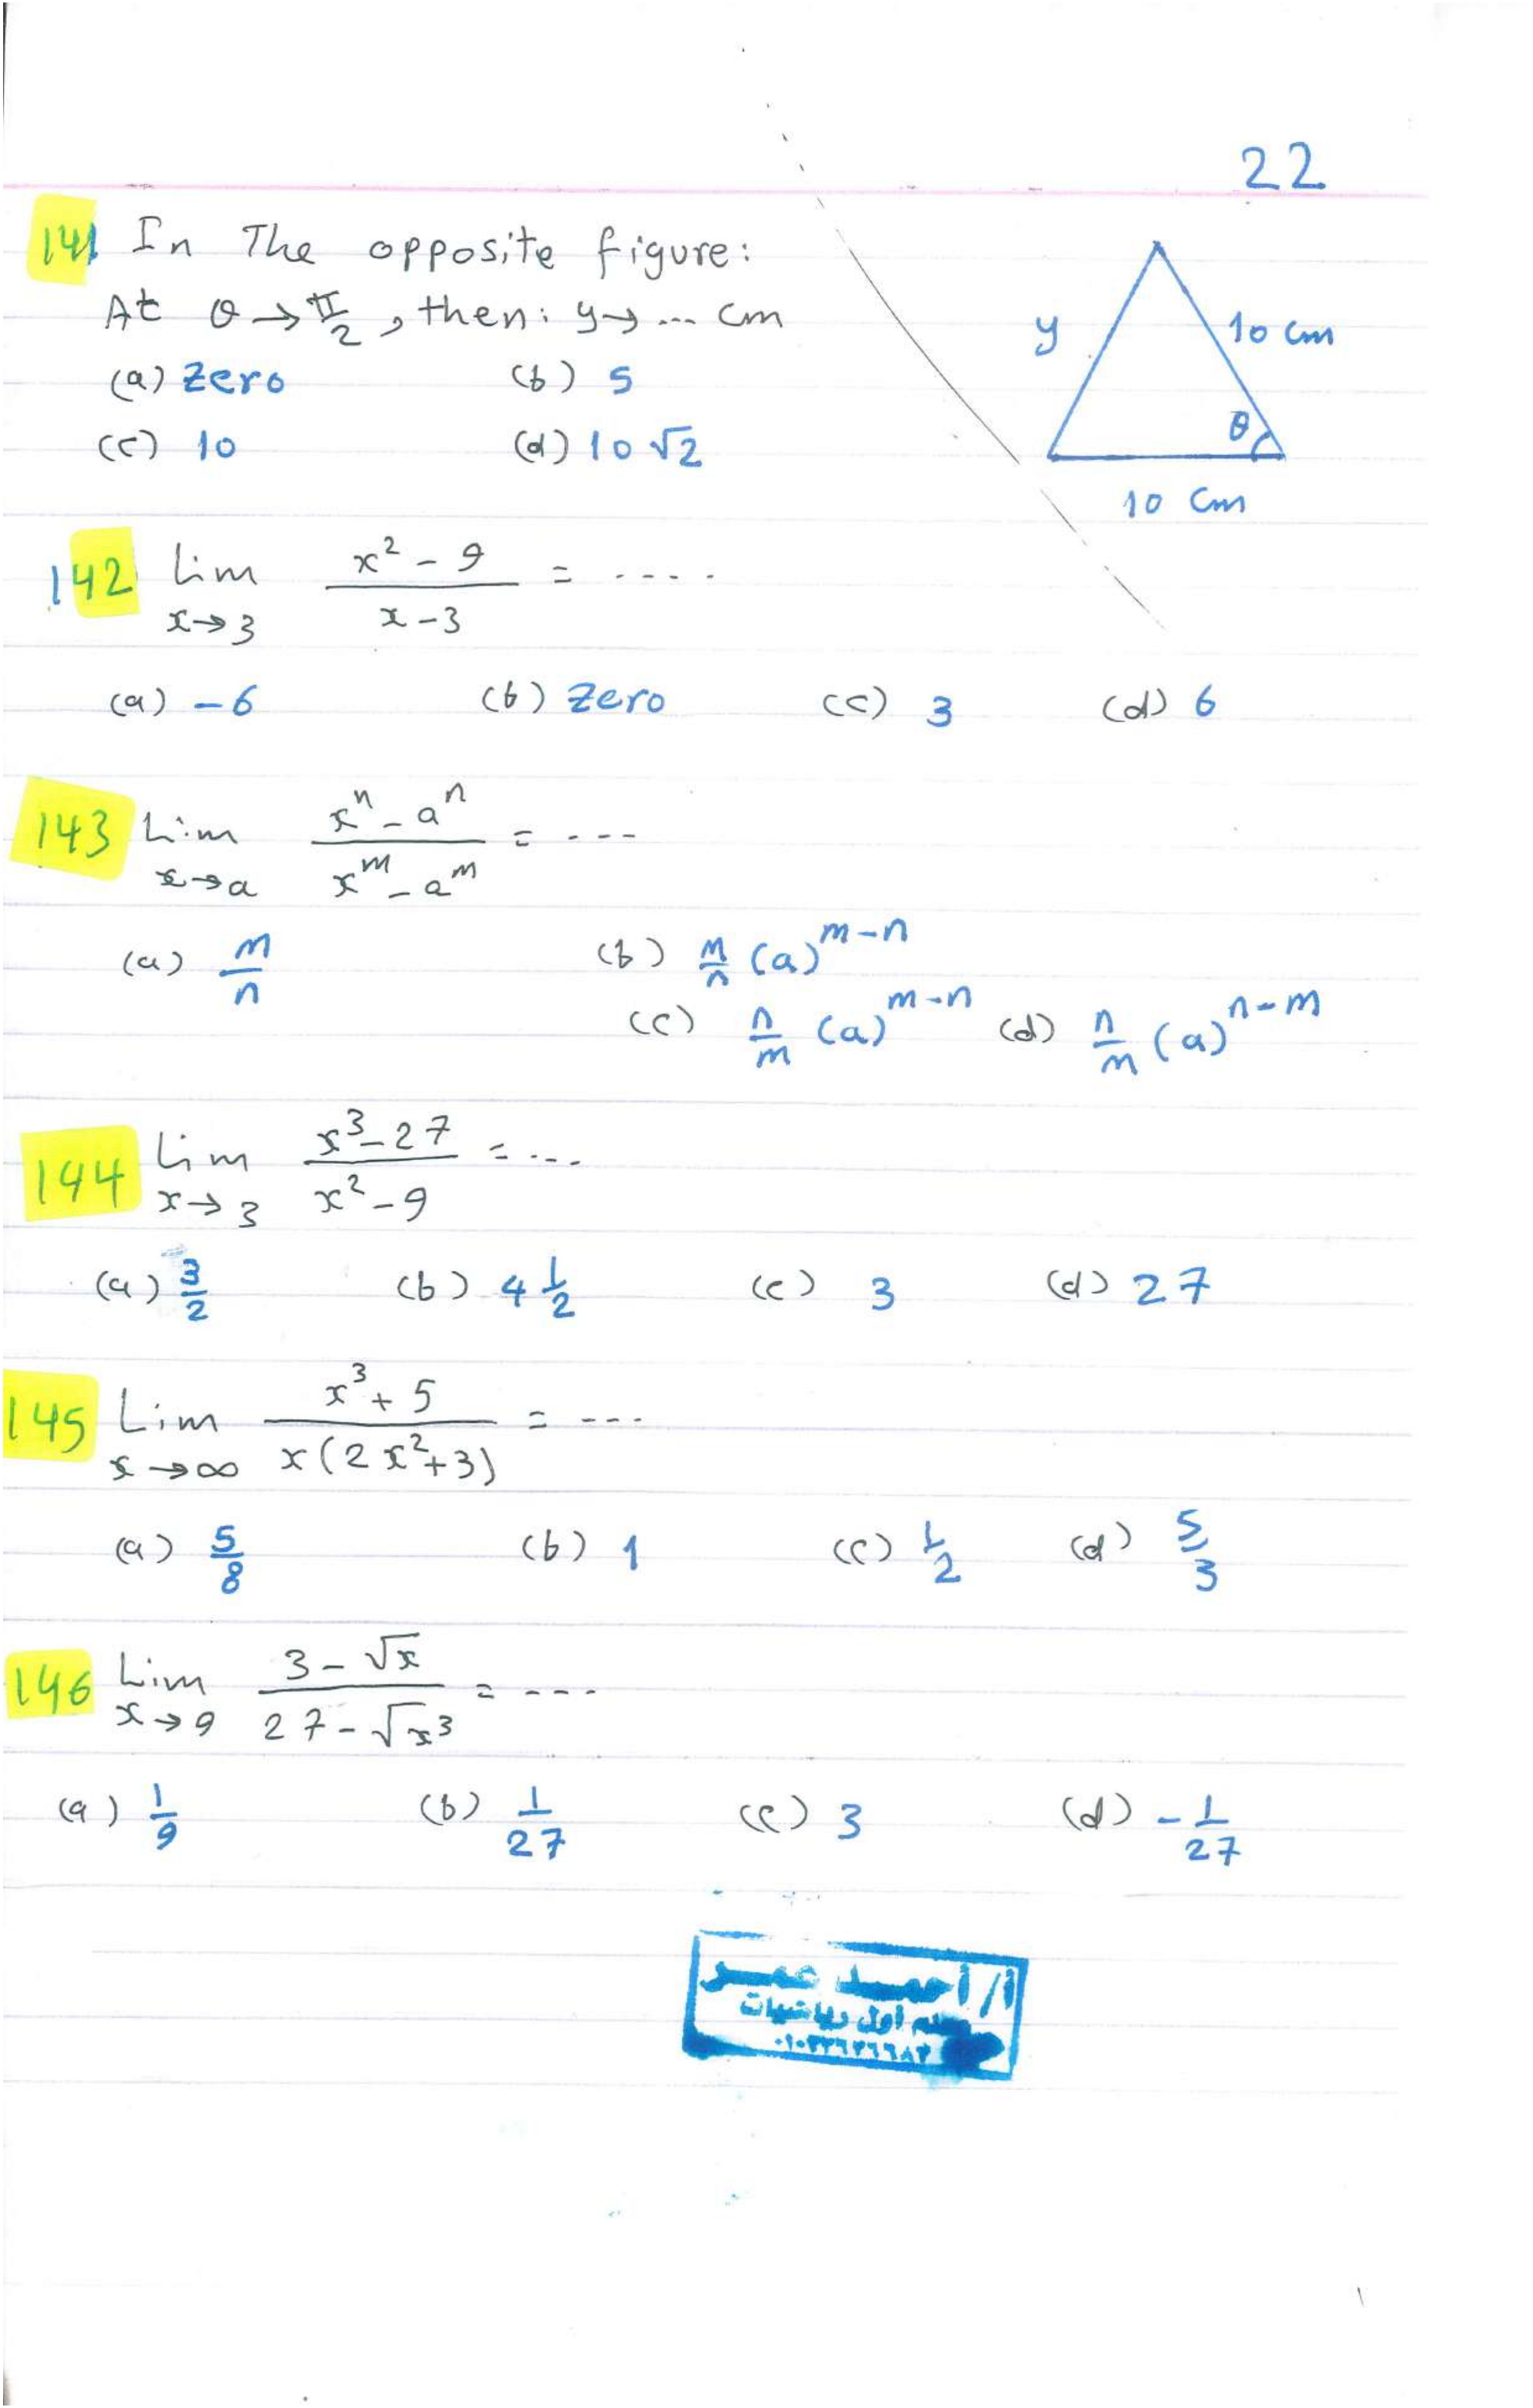 22
141 In The opposite figure:
At θ → π/2 , then: y → ... cm
(a) Zero (b) 5
(c) 10 (d) 10√2
y 10 cm
θ
10 cm
142 Lim x→3 (x² - 9)/(x - 3) = ....
(a) -6 (b) Zero (c) 3 (d) 6
143 Lim x→a (xⁿ - aⁿ)/(xᵐ - aᵐ) = ...
(a) m/n (b) m/n (a)^(m-n)
(c) n/m (a)^(m-n) (d) n/m (a)^(n-m)
144 Lim x→3 (x³ - 27)/(x² - 9) = ...
(a) 3/2 (b) 4 1/2 (c) 3 (d) 27
145 Lim x→∞ (x³ + 5)/(x(2x² + 3)) = ...
(a) 5/8 (b) 1 (c) 1/2 (d) 5/3
146 Lim x→9 (3 - √x)/(27 - √x³) = ...
(a) 1/9 (b) 1/27 (c) 3 (d) -1/27
أ/ أحمد عمر
أول رياضيات